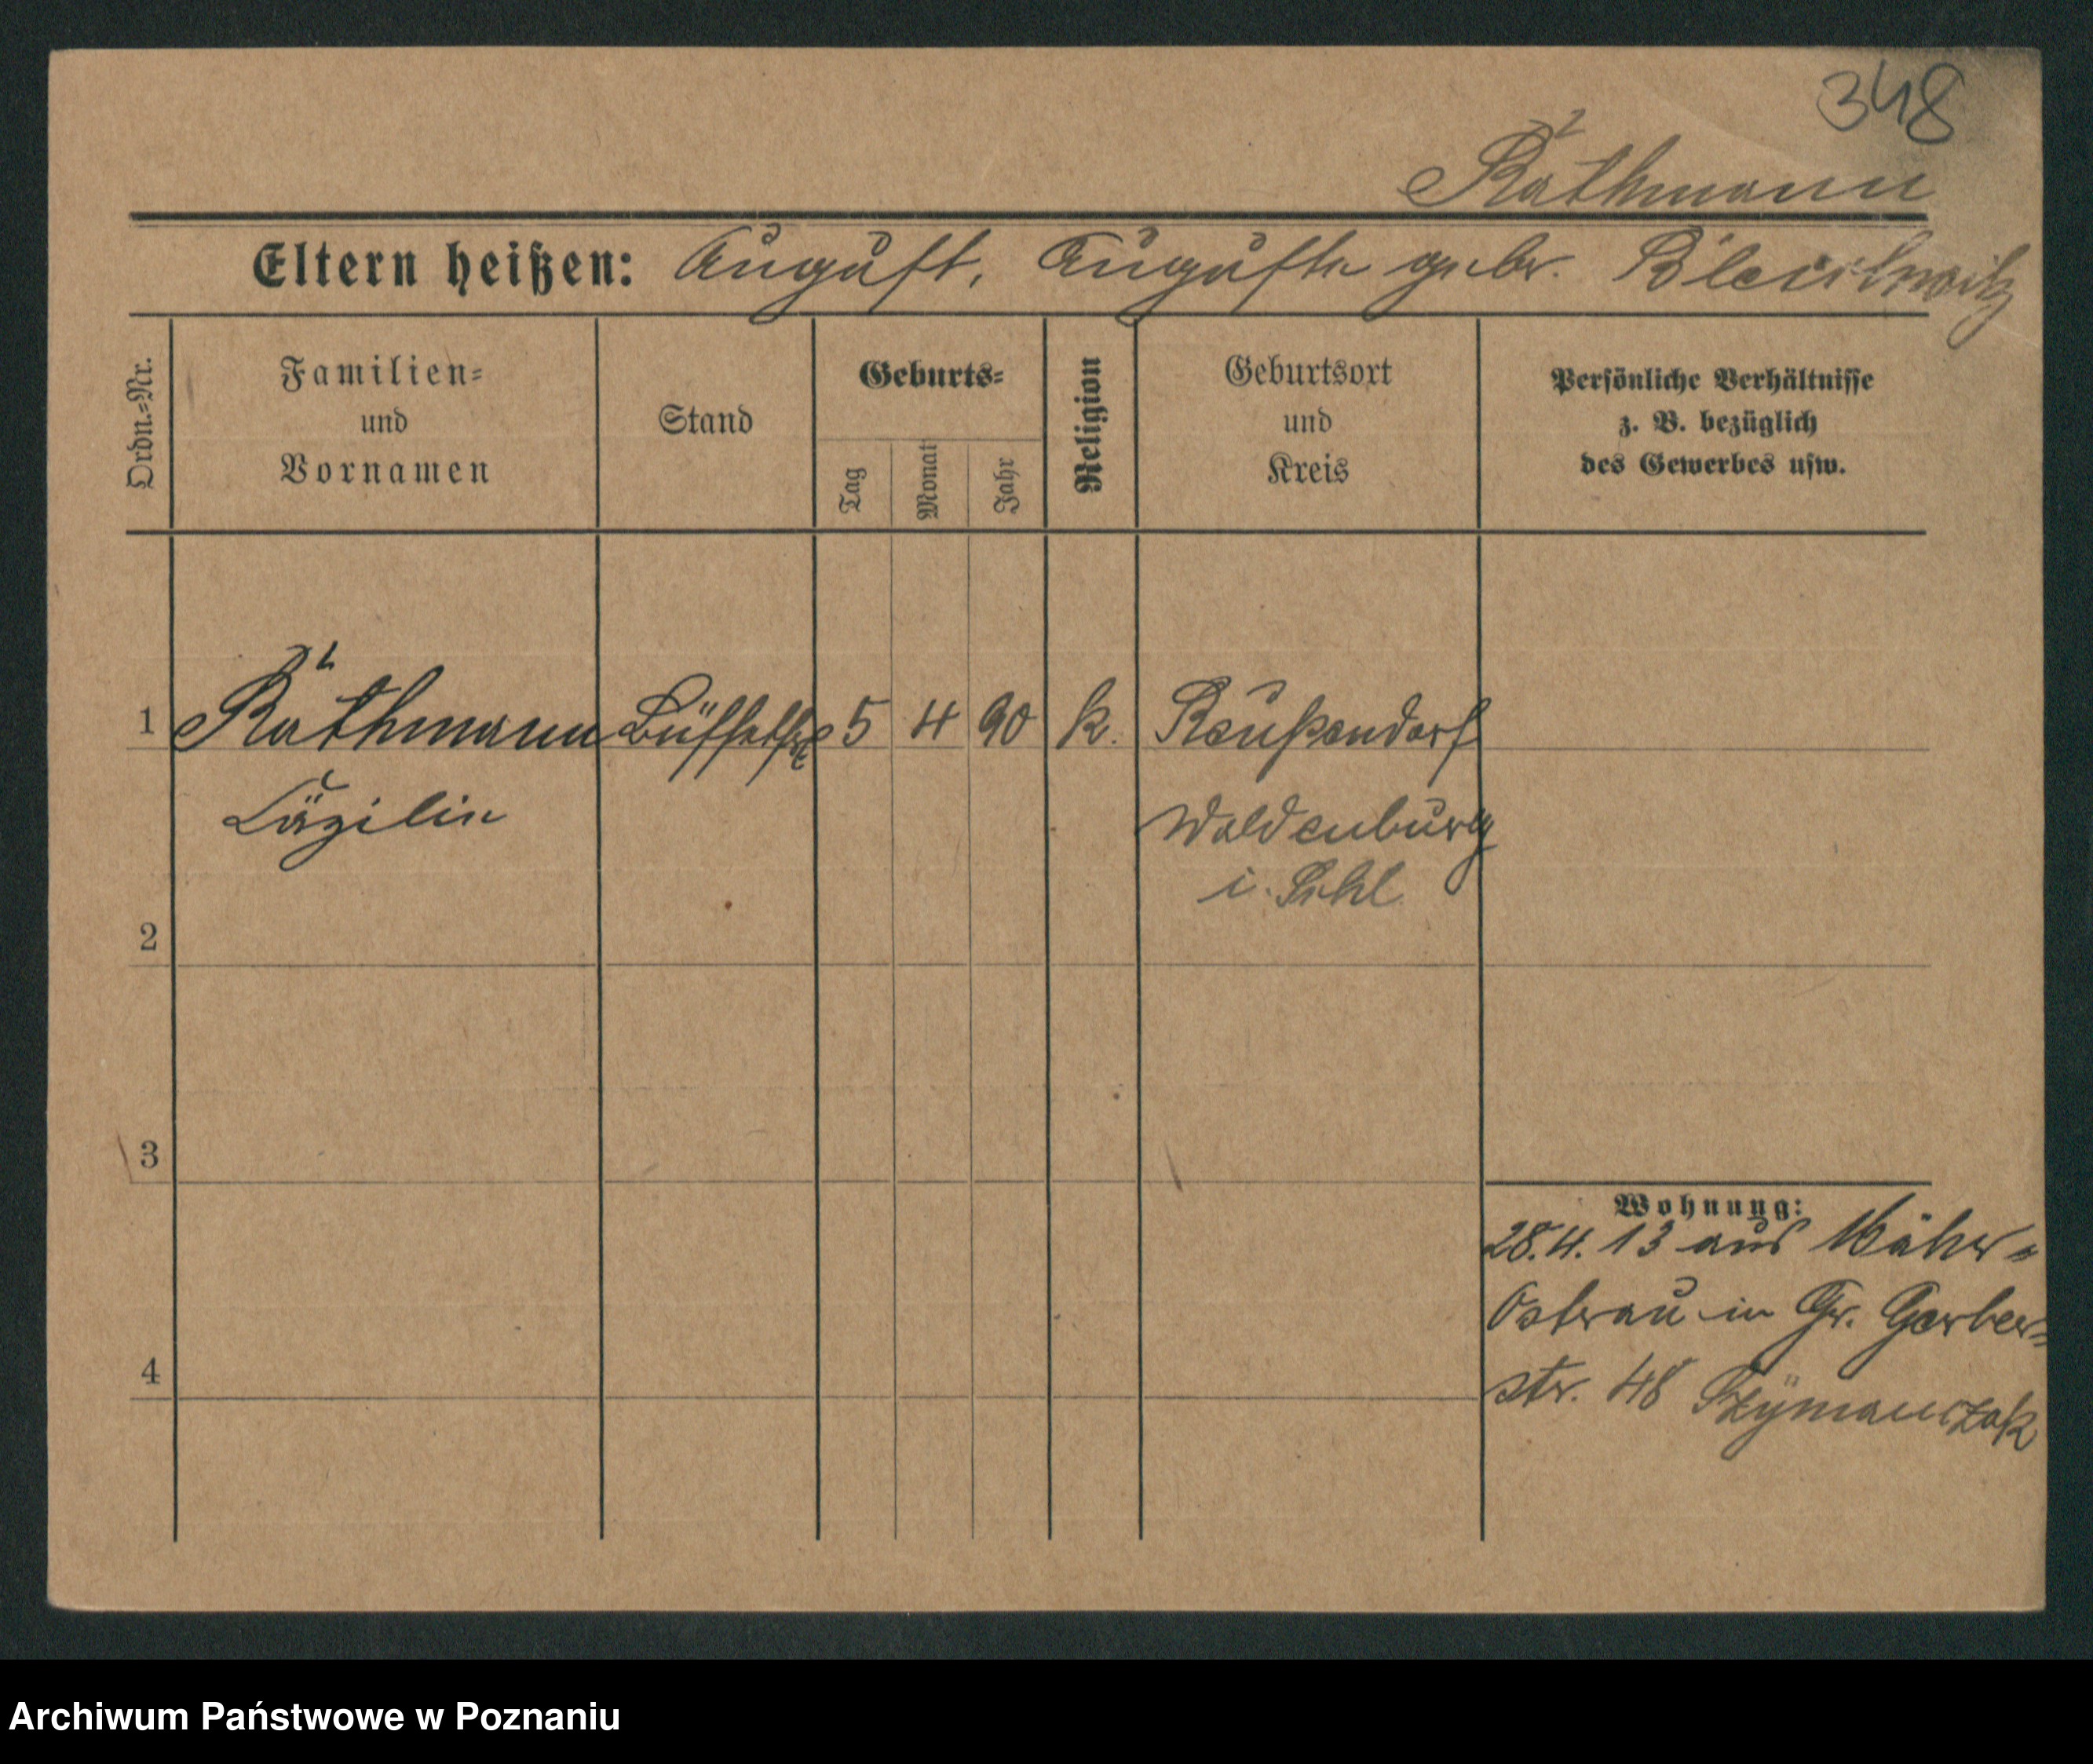 348
Räthmann
Eltern heißen: August, Auguste gebr.
Ordn.=Nr.
Familien=
und
Vornamen
Stand
Geburts=
Tag
Monat
Jahr
Religion
Geburtsort
und
Kreis
Persönliche Verhältnisse
z. B. bezüglich
des Gewerbes usw.
1 Räthmann 5 4 90 k. Reußendorf
Cäzilie Waldenburg
i. Schl.
2
3
4
Wohnung:
28.4.13 aus Mähr=
Ostrau in Gr. Gerber=
str. 48 Szÿmanczak
Archiwum Państwowe w Poznaniu